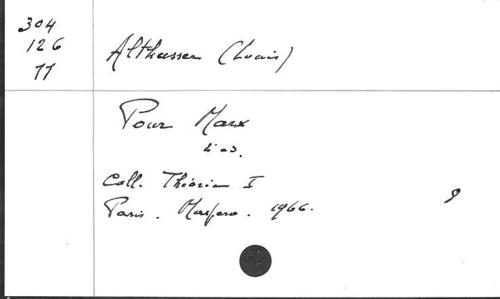 304
126
77
Althusser (Louis)
Pour Marx
Coll. Théorie I
Paris. Maspero. 1966.